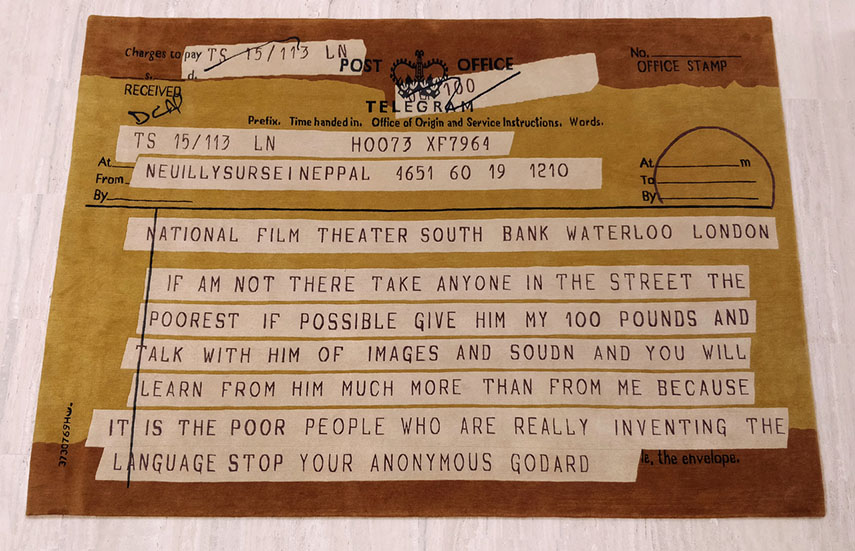 Charges to pay TS 15/113 LN
POST OFFICE
No.
OFFICE STAMP
s. d.
RECEIVED
100
TELEGRAM
Prefix. Time handed in. Office of Origin and Service Instructions. Words.
TS 15/113 LN H0073 XF7964
At
From
By
NEUILLYSURSEINEPPAL 4651 60 19 1210
At m
To
By
NATIONAL FILM THEATER SOUTH BANK WATERLOO LONDON
IF AM NOT THERE TAKE ANYONE IN THE STREET THE
POOREST IF POSSIBLE GIVE HIM MY 100 POUNDS AND
TALK WITH HIM OF IMAGES AND SOUDN AND YOU WILL
LEARN FROM HIM MUCH MORE THAN FROM ME BECAUSE
IT IS THE POOR PEOPLE WHO ARE REALLY INVENTING THE
LANGUAGE STOP YOUR ANONYMOUS GODARD
, the envelope.
3730769HW.